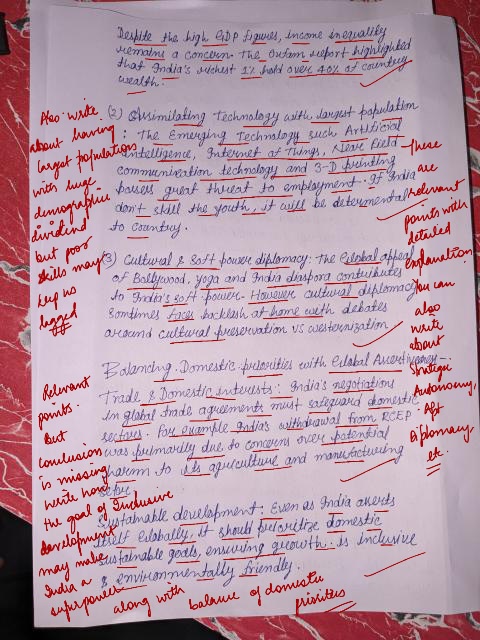 Despite the high GDP figures, income inequality
remains a concern. The Oxfam report highlighted
that India's richest 1% hold over 40% of country
wealth.
(2) Assimilating Technology with largest population
: The Emerging Technology such Artificial
Intelligence, Internet of Things, Near Field
communication technology and 3-D printing
possess great threat to employment. If India
don't skill the youth, it will be determental
to country.
(3) Cultural & Soft power diplomacy: The Global appeal
of Bollywood, yoga and India diaspora contributes
to India's soft power. However cultural diplomacy
Somtimes faces backlash at home with debates
around cultural preservation vs westernization
Balancing Domestic priorities with Global Assertiveness -
Trade & Domestic interests: India's negotiations
in global trade agreements must safeguard domestic
sectors. For example India's withdrawal from RCEP
was primarily due to concerns over potential
harm to its agriculture and manufacturing
sector
Sustainable development: Even as India asserts
itself Globally, it should prioritize domestic
sustainable goals, ensuring growth is inclusive
& environmentally friendly.
Also write
about having
largest populations
with huge
demographic
dividend
but poor
skills may
keep us
lagged
These
are
relevant
points with
detailed
explanation
You can
also
write
about
Strategic
Autonomy,
Diplomacy
etc.
Relevant
points.
But
conclusion
is missing
write how
the goal of Inclusive
development
may make
India a
superpower along with balance of domestic
priorities